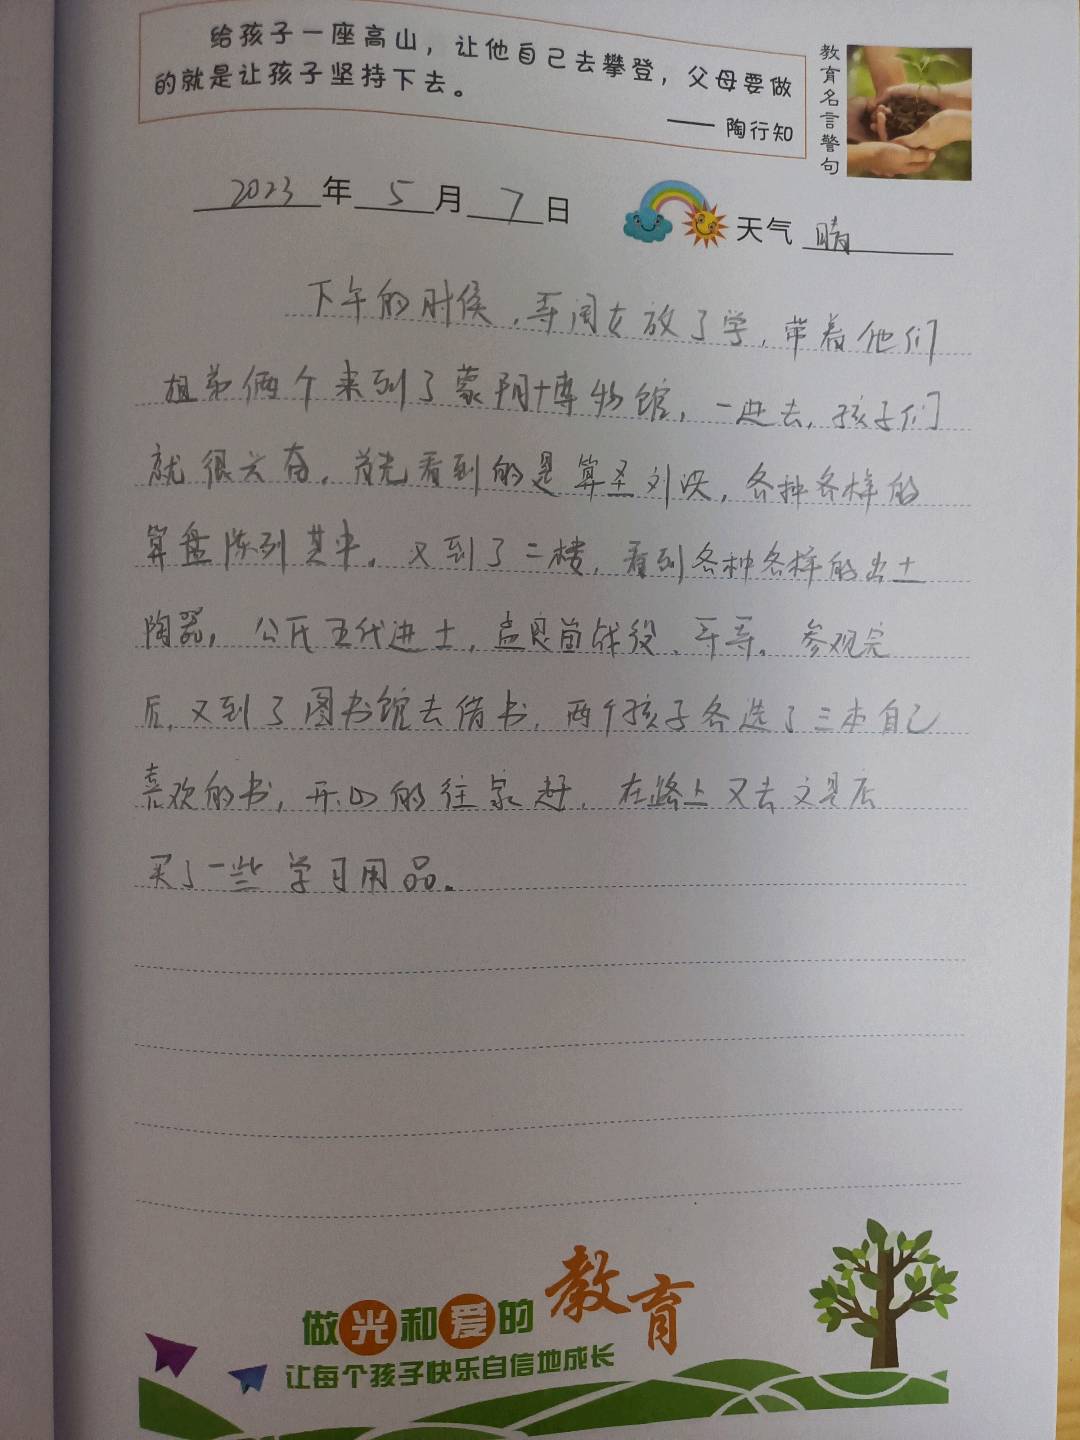 给孩子一座高山，让他自己去攀登，父母要做
的就是让孩子坚持下去。
—— 陶行知
教育名言警句
2023年5月7日
天气 晴
下午的时候，等闺女放了学，带着他们
姐弟俩个来到了蒙阴博物馆，一进去，孩子们
就很兴奋，首先看到的是算圣刘洪，各种各样的
算盘陈列其中。又到了二楼，看到各种各样的出土
陶器，公氏五代进士，孟良崮战役、等等。参观完
后，又到了图书馆去借书，两个孩子各选了三本自己
喜欢的书，开心的往家赶，在路上又去文具店
买了一些学习用品。
做光和爱的教育
让每个孩子快乐自信地成长